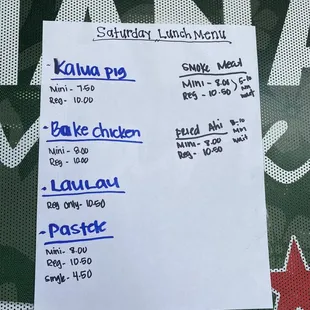 Saturday Lunch Menu
- Kalua pig
Mini - 7.50
Reg - 10.00
- Bake chicken
Mini - 8.00
Reg - 10.00
- LauLau
Reg only - 10.50
- Pastele
Mini - 8.00
Reg - 10.50
Single - 4.50
Smoke Meat
Mini - 8.00
Reg - 10.50
5-10
min
wait
Fried Ahi
Mini - 8.00
Reg - 10.50
8-10
min
wait